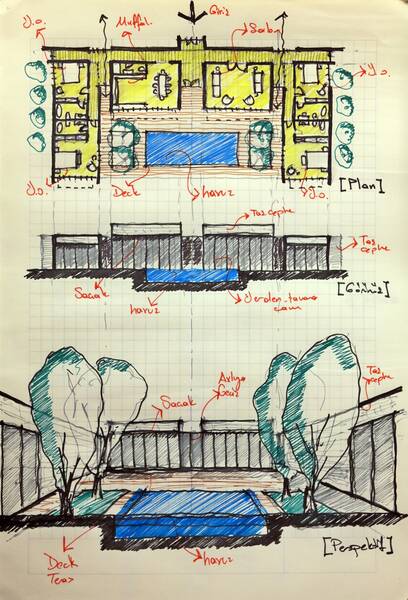 Giriş
Y.o.
Mutfak.
Salon
Y.o.
[Plan]
Y.o.
Deck
havuz
Y.o.
Taş cephe
Taş
cephe
[Görünüş]
Saçak
havuz
Yerden-tavana
cam
Saçak
Avluya
Geçiş
Taş
cephe
[Perspektif]
Deck
Teras
havuz